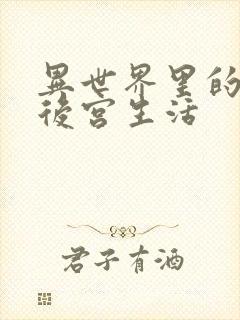 異世界里的
後宮生活
君子有酒